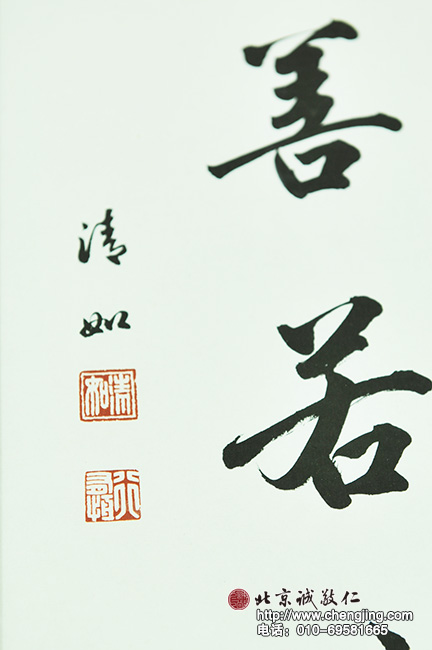 善若
清如
北京诚敬仁
www.chengjing.com
电话：010-69581665